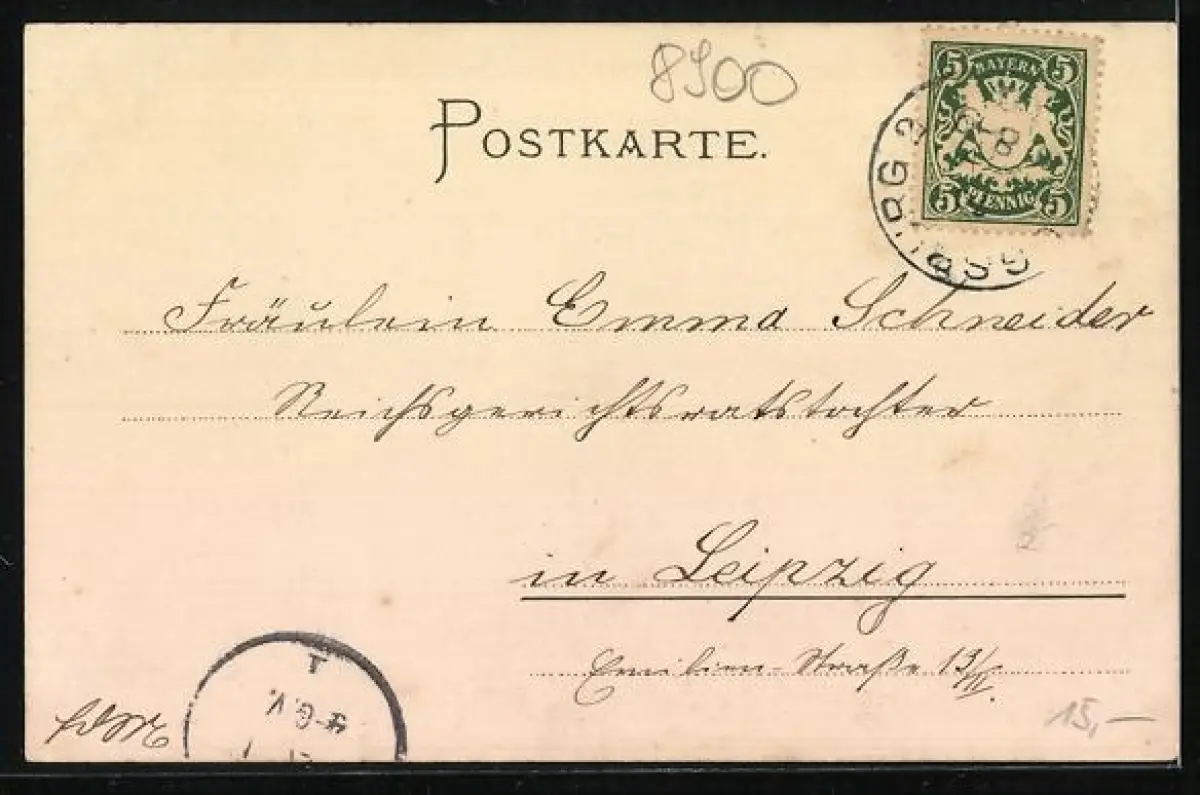 8900
POSTKARTE.
5 BAYERN 5
5 PFENNIG 5
Fräulein Emma Schneider
Reichsgerichtsratstochter
in Leipzig
Emilien-Straße 13/II.
15,-